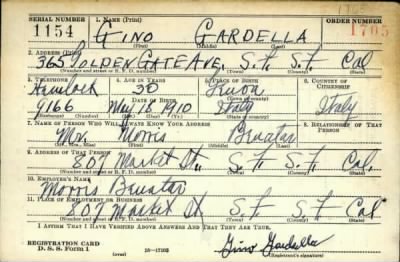 SERIAL NUMBER 1. NAME (Print) ORDER NUMBER
1154 GINO GARDELLA 1705
(First) (Middle) (Last)
2. ADDRESS (Print)
365 GOLDEN GATE AVE, S.F. S.F. Cal
(Number and street or R. F. D. number) (Town) (County) (State)
3. TELEPHONE 4. AGE IN YEARS 5. PLACE OF BIRTH 6. COUNTRY OF CITIZENSHIP
Hemlock 30
9166 DATE OF BIRTH (Town or county) Italy
May 18, 1910 Italy
(Exchange) (Number) (Mo.) (Day) (Yr.) (State or country)
7. NAME OF PERSON WHO WILL ALWAYS KNOW YOUR ADDRESS 8. RELATIONSHIP OF THAT PERSON
Mr. Morris
(Mr., Mrs., Miss) (First) (Middle) (Last)
9. ADDRESS OF THAT PERSON
807 Market St., S.F. S.F. Cal.
(Number and street or R. F. D. number) (Town) (County) (State)
10. EMPLOYER'S NAME
Morris
11. PLACE OF EMPLOYMENT OR BUSINESS
807 Market St S.F. S.F. Cal
(Number and street or R. F. D. number) (Town) (County) (State)
I AFFIRM THAT I HAVE VERIFIED ABOVE ANSWERS AND THAT THEY ARE TRUE.
REGISTRATION CARD
D. S. S. Form 1 (over) Gino Gardella
(Registrant's signature)